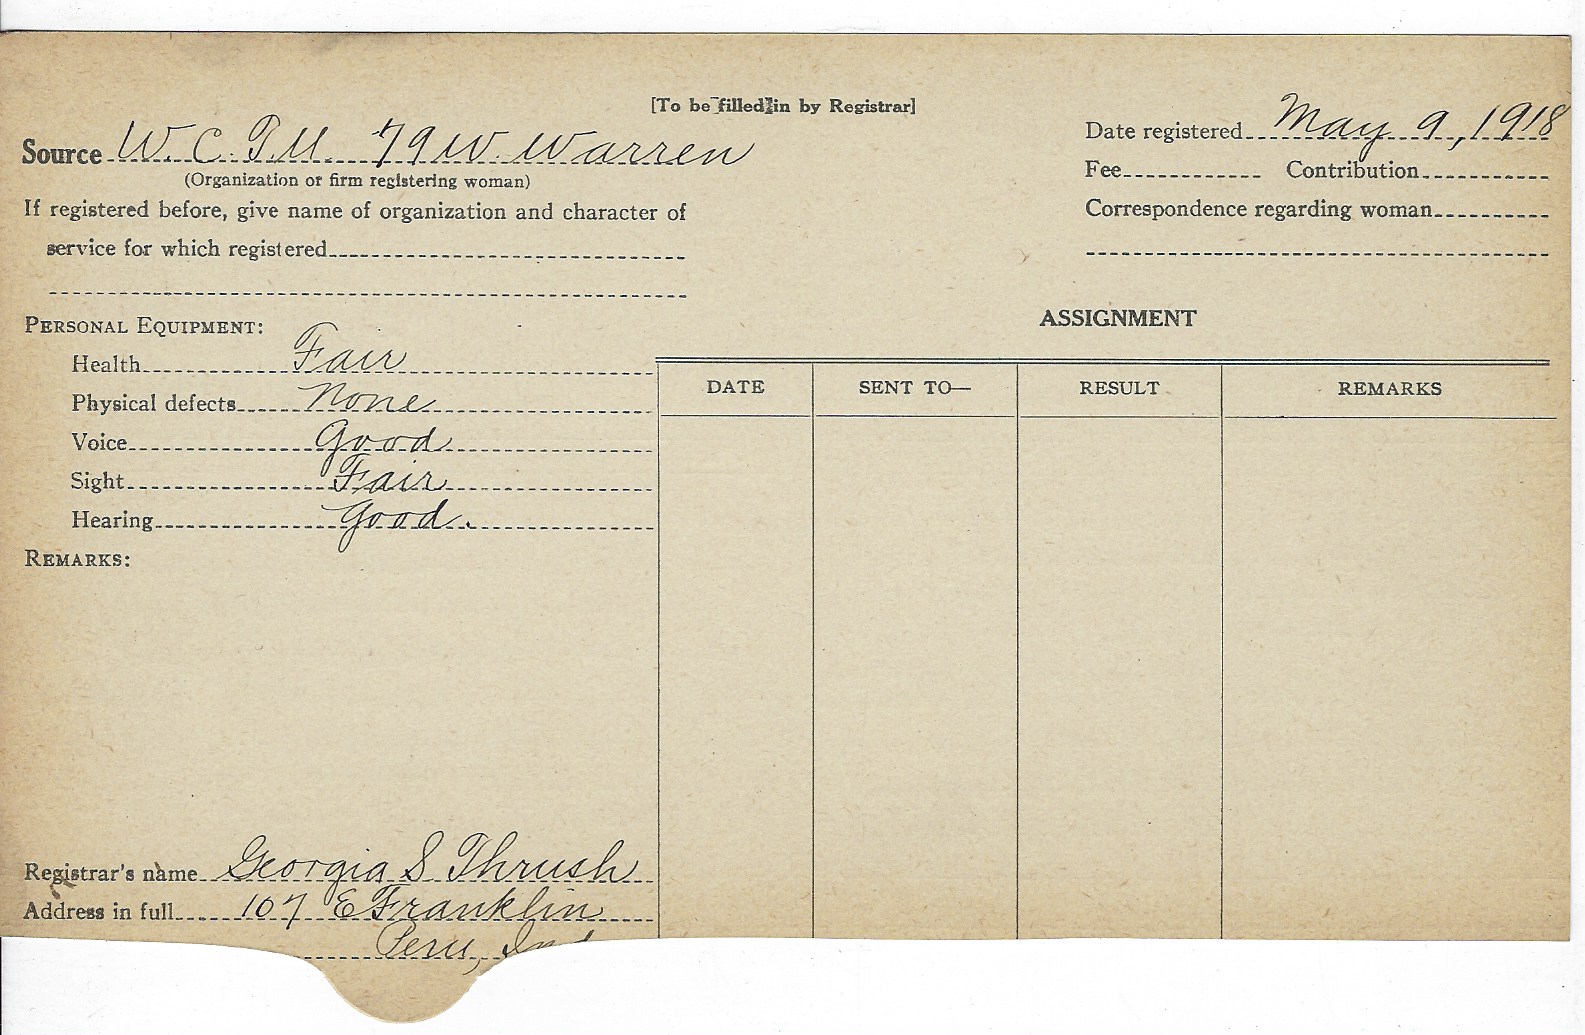 [To be filled in by Registrar]
Source W. C. T. U. 79 W. Warren
(Organization or firm registering woman)
If registered before, give name of organization and character of
service for which registered
Date registered May 9, 1918
Fee Contribution
Correspondence regarding woman
PERSONAL EQUIPMENT:
Health Fair
Physical defects None
Voice Good
Sight Fair
Hearing Good.
REMARKS:
ASSIGNMENT
DATE SENT TO— RESULT REMARKS
Registrar's name Georgia S Thrush
Address in full 107 E Franklin
Peru, Ind